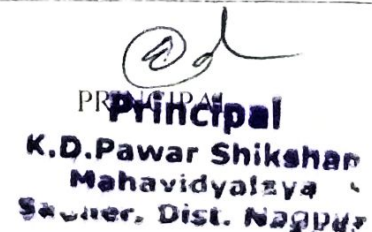 PRINCIPAL
Principal
K.D.Pawar Shikshan
Mahavidyalaya
Saoner, Dist. Nagpur